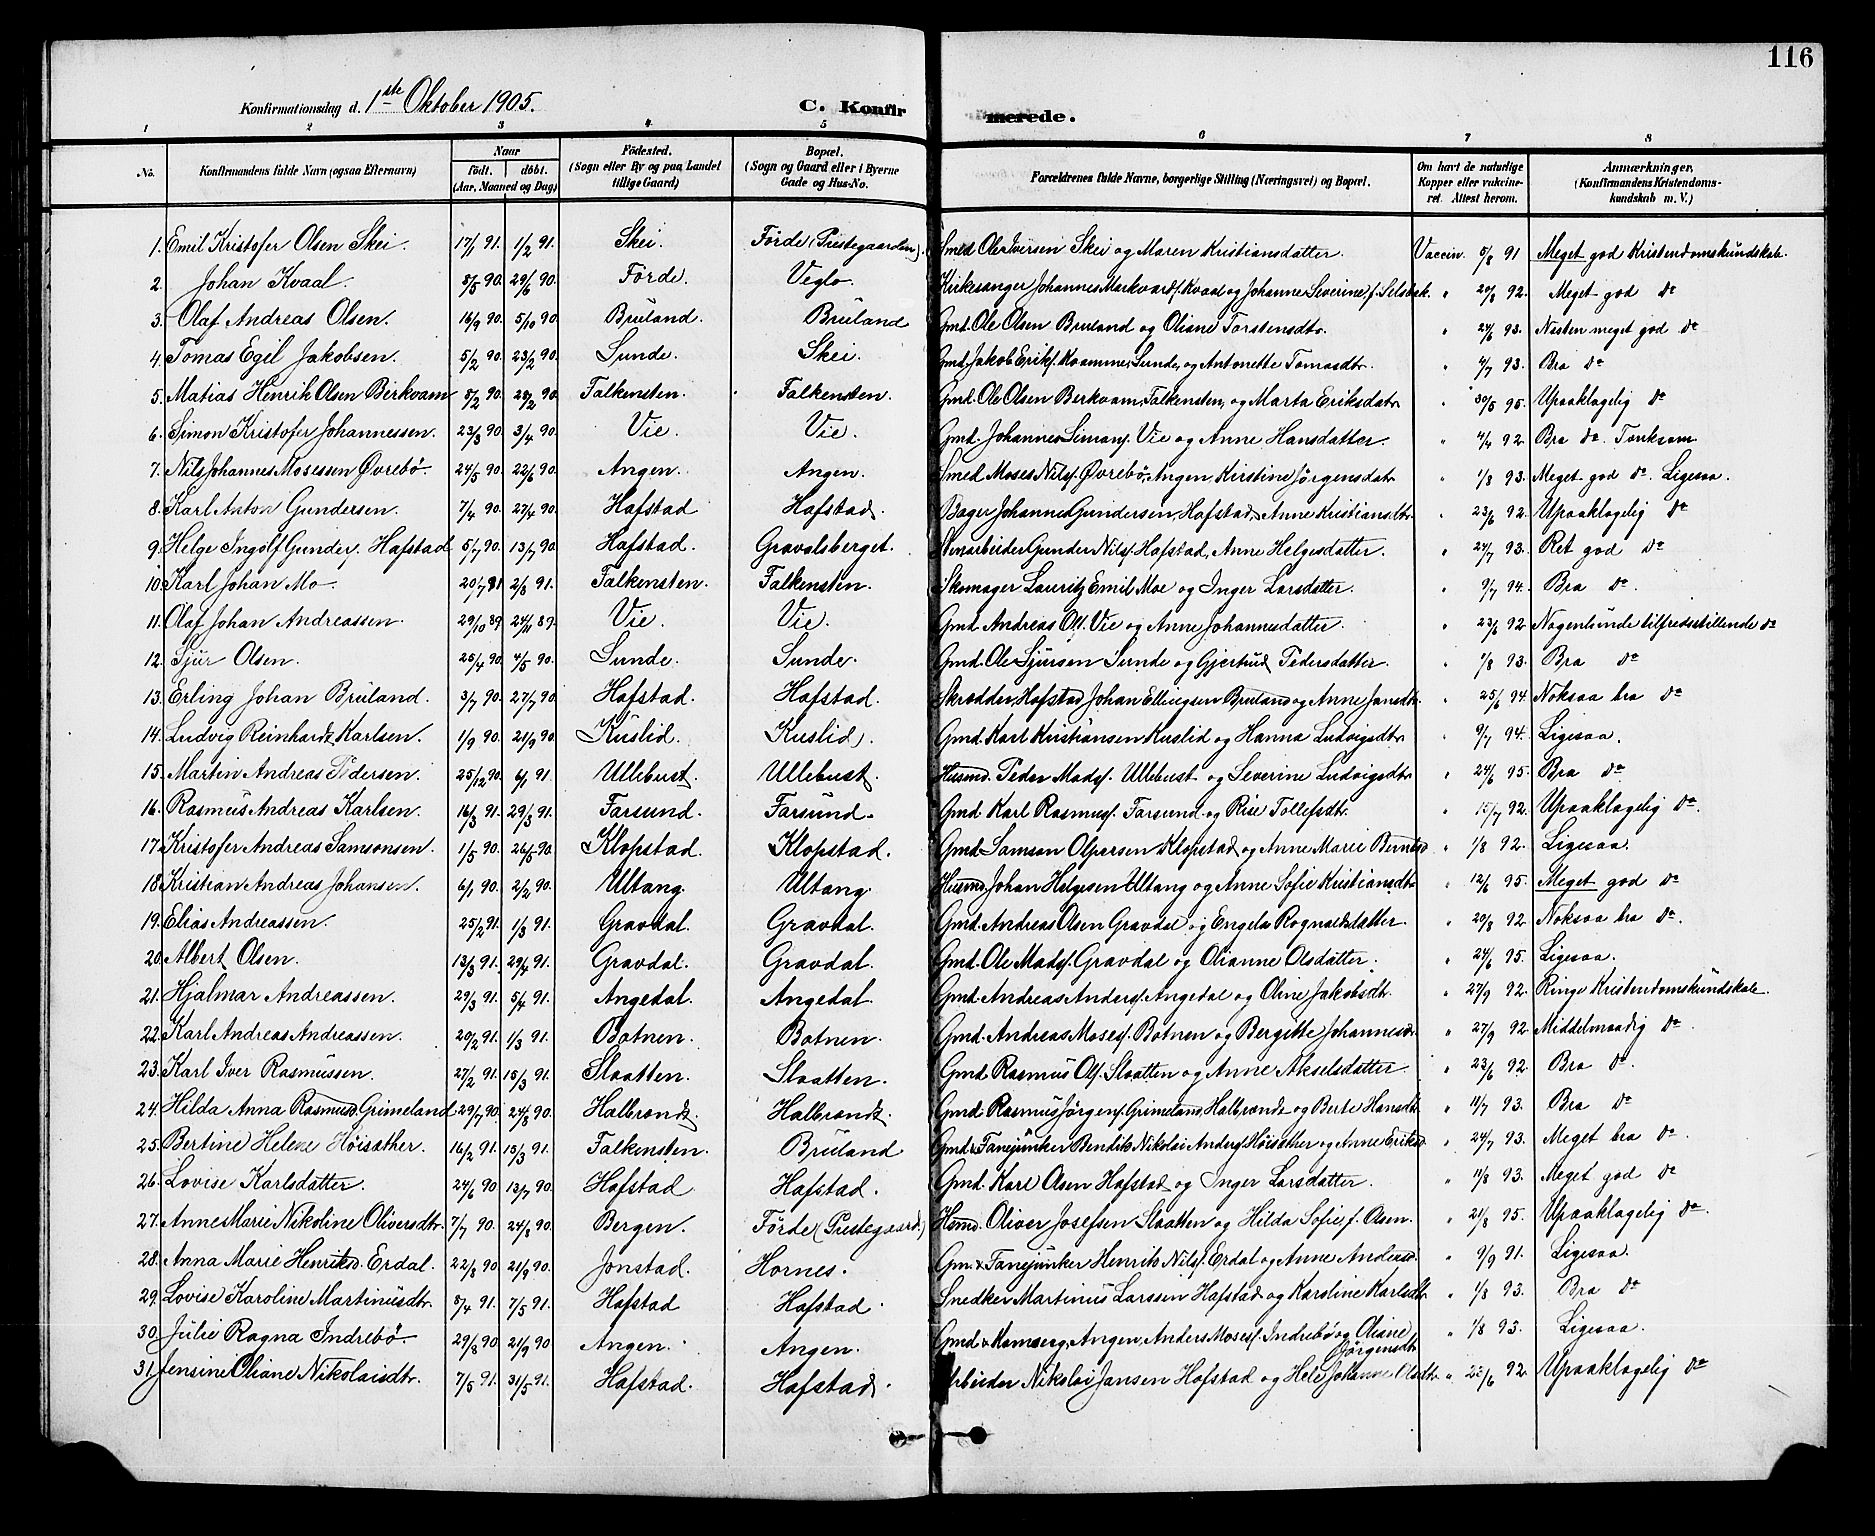 116
Konfirmationsdag d. 1ste Oktober 1905. C. Konfirmerede.
1 2 3 4 5 6 7 8
No. Konfirmandens fulde Navn (ogsaa Efternavn) Naar født. døbt. (Aar, Maaned og Dag) Fødested. (Sogn eller By og paa Landet tillige Gaard) Bopæl. (Sogn og Gaard eller i Byerne Gade og Hus-No. Forældrenes fulde Navne, borgerlige Stilling (Næringsvei) og Bopæl. Om havt de naturlige Kopper eller vakcineret. Attest herom. Anmærkninger, (Konfirmandens Kristendomskundskab m. V.)
1. Emil Kristofer Olsen Skei. 17/1 91. 1/2 91. Skei. Førde (Prestegaarden). Smed Ole Iversen Skei og Maren Kristiansdatter. Vaccin. 5/8 91 Meget god Kristendomskundskab.
2. Johan Kvaal. 8/5 90. 29/6 90. Førde. Veglo. Kirkesanger Johannes Markvards. Kvaal og Johanne Severine f. Selsbak. " 20/8 92. Meget god do
3. Olaf Andreas Olsen. 16/9 90. 5/10 90 Bruland. Bruland Gmd. Ole Olsen Bruland og Oliane Torstensdtr. " 24/6 93. Nesten meget god do
4. Tomas Egil Jakobsen. 5/2 90. 23/2 90. Sunde. Skei. Gmd. Jakob Eriks. Kvamme, Sunde, og Antonette Tomasdtr. " 4/7 93. Bra do
5. Matias Henrik Olsen Birkvam 8/2 90. 28/2 90. Falkensten. Falkensten. Gmd. Ole Olsen Berkvam, Falkensten, og Marta Eriksdatr " 30/5 95. Upaaklagelig do
6. Simon Kristofer Johannessen. 23/3 90. 3/4 90. Vie. Vie. Gmd. Johannes Simons. Vie og Anne Hansdatter. " 4/4 92. Bra do. Tænksom
7. Nils Johannes Mosessen Øvrebø. 24/5 90. 22/6 90. Angen. Angen. Smed Moses Nils. Øvrebø, Angen, Kristine Jørgensdatr " 1/8 93. Meget god do. Ligesaa.
8. Karl Anton Gundersen. 7/4 90. 27/4 90. Hafstad Hafstad. Bager Johannes Gundersen, Hafstad, Anne Kristiansdtr. " 23/6 92. Upaaklagelig do
9. Helge Ingolf Gunders. Hafstad 5/7 90. 13/7 90. Hafstad. Gravalsberget. Stenarbeider Gunder Nils. Hafstad, Anne Helgesdatter. " 24/7 93. Ret god do
10. Karl Johan Mo. 20/7 91 2/8 91. Falkensten. Falkensten. Skomager Lauritz Emil Moe og Inger Larsdatter. " 9/7 94. Bra do
11. Olaf Johan Andreassen. 29/10 89. 24/11 89. Vie. Vie. Gmd. Andreas Oll. Vie og Anne Johannesdatter. " 23/6 92 Nogenlunde tilfredsstillende do
12. Sjur Olsen. 25/4 90. 4/5 90. Sunde. Sunde. Gmd. Ole Sjursen Sunde og Gjertrud Pedersdatter. " 1/8 93. Bra do
13. Erling Johan Bruland. 3/7 90. 27/7 90. Hafstad. Hafstad. Skrædder, Hafstad, Johan Ellingsen Bruland og Anne Jansdtr. " 25/6 94. Noksaa bra do
14. Ludvig Reinhardt Karlsen. 1/9 90. 21/9 90. Kuslid. Kuslid. Gmd. Karl Kristiansen Kuslid og Hanna Ludvigsdtr " 9/7 94. Ligesaa.
15. Martin Andreas Pedersen. 25/12 90. 6/1 91. Ullebust. Ullebust. Husmd. Peder Mads. Ullebust og Severine Ludvigsdtr " 24/6 95. Bra do
16. Rasmus Andreas Karlsen. 16/3 91. 29/3 91. Farsund. Farsund. Gmd Karl Rasmus. Farsund og Rise Tollefsdtr. " 15/7 92. Upaaklagelig do.
17. Kristofer Andreas Samsonsen. 1/5 90. 26/5 90 Klopstad. Klopstad. Gmd. Samson Olpersen Klopstad og Anne Marie Berntsd " 1/8 92. Ligesaa.
18. Kristian Andreas Johansen. 6/1 90. 2/2 90. Ultang. Ultang. Husmd. Johan Helgesen Ultang og Anne Sofie Kristiansdtr " 12/6 95. Meget god do
19. Elias Andreassen. 25/2 91. 1/3 91. Gravdal. Gravdal. Gmd. Andreas Olsen Gravdal og Engela Rognaldsdatter. " 20/8 92. Noksaa bra do.
20. Albert Olsen. 13/3 91. 29/4 91. Gravdal. Gravdal. Gmd. Ole Mads. Gravdal og Olianne Olsdatter. " 24/6 95. Ligesaa.
21. Hjalmar Andreassen. 29/3 91. 5/4 91. Angedal. Angedal. Gmd. Andreas Anders. Angedal og Oline Jakobsdt. " 27/9 92. Ringe Kristendomskundskab.
22. Karl Andreas Andreassen. 20/2 91. 1/3 91. Botnen. Botnen. Gmd. Andreas Moses. Botnen og Bergitte Johannesd. " 27/9 92. Middelmaadig do.
23. Karl Iver Rasmussen. 27/2 91. 15/3 91. Slaatten. Slaatten. Gmd Rasmus Ols. Slaatten og Anne Akselsdatter " 23/6 92. Bra do.
24. Hilda Anna Rasmusd. Grimeland 29/7 90. 24/8 90. Halbrendt. Halbrendt. Gmd. Rasmus Jørgens. Grimeland, Halbrendt og Berte Hansdtr " 11/7 93. Bra do
25. Bertine Helene Høisæther. 16/2 91. 15/3 91. Falkensten. Bruland Gmd. & Fanejunker Bendik Nikolai Anders. Høisæther og Anne Eriksd. " 24/7 93. Meget bra do.
26. Lovise Karlsdatter. 24/6 90 13/7 90. Hafstad Hafstad. Gmd. Karl Olsen Hafstad og Inger Larsdatter. " 11/8 93. Meget god do
27. Anne Marie Nikoline Oliversdtr. 7/7 90. 24/8 90. Bergen. Førde (Prestegaard.) Hsmd. Oliver Josefsen Slaatten og Hilda Sofie, f. Olsen. " 21/8 95. Upaaklagelig do.
28. Anna Marie Henriksd. Erdal. 22/8 90 21/9 90. Jonstad. Hornes. Gm. & Fanejunker Henrik Nils. Erdal og Anne Andersd. " 9/9 91. Ligesaa.
29. Lovise Karoline Martinusdtr. 8/4 91. 7/5 91. Hafstad Hafstad. Snedker Martinus Larssen Hafstad og Karoline Karlsdtr " 1/8 93. Bra do
30. Julie Ragna Indrebø. 29/8 90 21/9 90 Angen. Angen. Gmd & Angen, Anders Moses. Indrebø og Oliane Jørgensdtr. " 1/8 93. Ligesaa.
31. Jensine Oliane Nikolaisdtr. 7/5 91. 31/5 91. Hafstad. Hafstad. Arbeider Nikolai Jansen Hafstad og Hele Johanne Olsdtr " 23/6 92. Upaaklagelig do